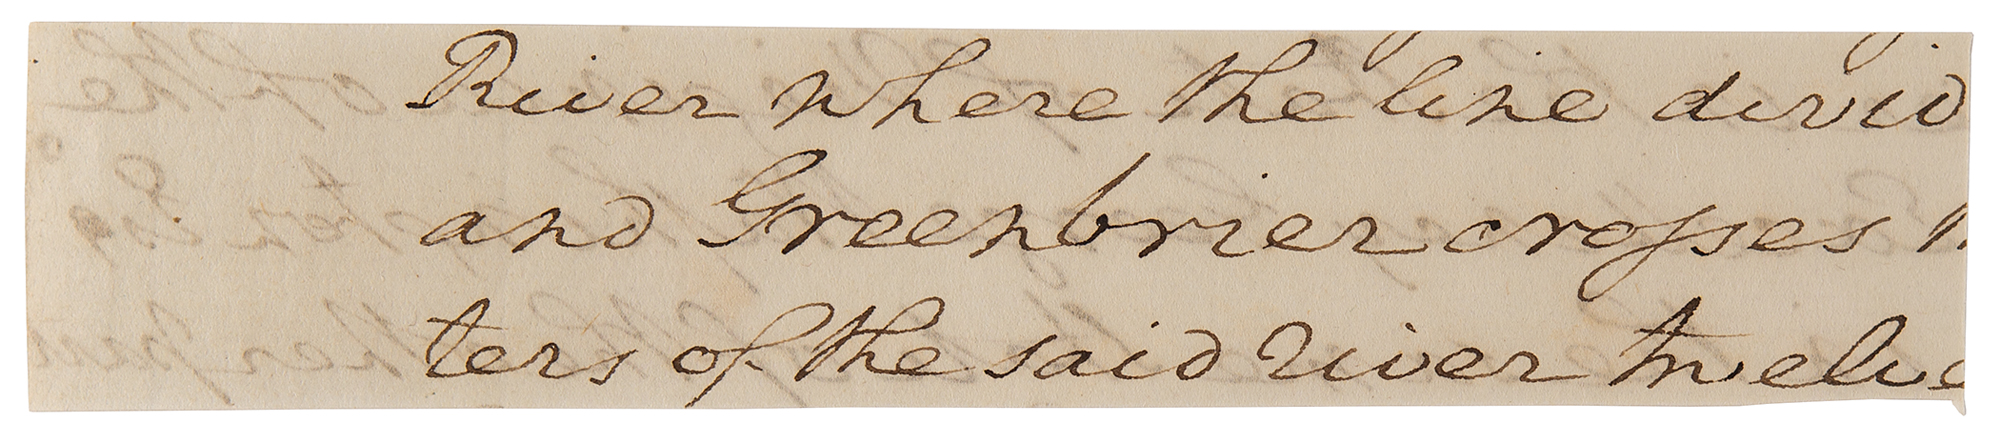 River where the line divid
and Greenbrier crosses
ters of the said river twelve